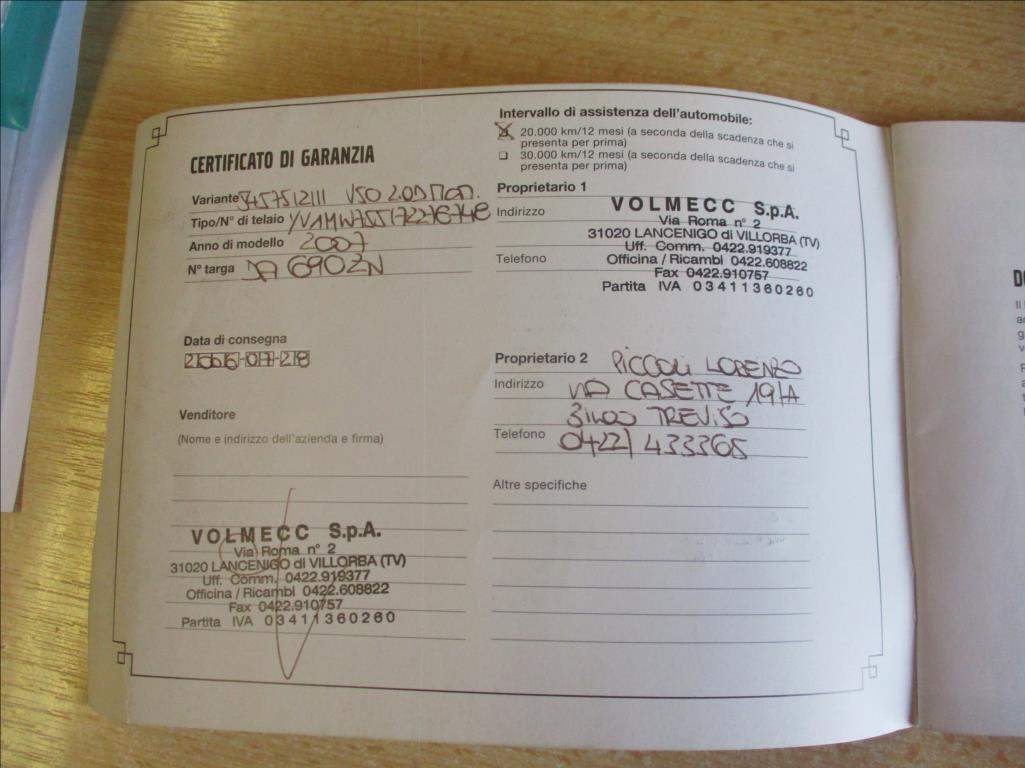 CERTIFICATO DI GARANZIA
Variante 5457512111 V50 2.0D MOM.
Tipo/N° di telaio
Anno di modello 2007
N° targa DA 690ZN
Data di consegna
Venditore
(Nome e indirizzo dell'azienda e firma)
VOLMECC S.p.A.
Via Roma n° 2
31020 LANCENIGO di VILLORBA (TV)
Uff. Comm. 0422.919377
Officina / Ricambi 0422.608822
Fax 0422.910757
Partita IVA 03411360260
Intervallo di assistenza dell'automobile:
20.000 km/12 mesi (a seconda della scadenza che si
presenta per prima)
30.000 km/12 mesi (a seconda della scadenza che si
presenta per prima)
Proprietario 1
Indirizzo
Telefono
VOLMECC S.p.A.
Via Roma n° 2
31020 LANCENIGO di VILLORBA (TV)
Uff. Comm. 0422.919377
Officina / Ricambi 0422.608822
Fax 0422.910757
Partita IVA 03411360260
Proprietario 2 PICCOLI LORENZO
Indirizzo VIA CASETTE 19/A
31100 TREVISO
Telefono 0422/ 433365
Altre specifiche